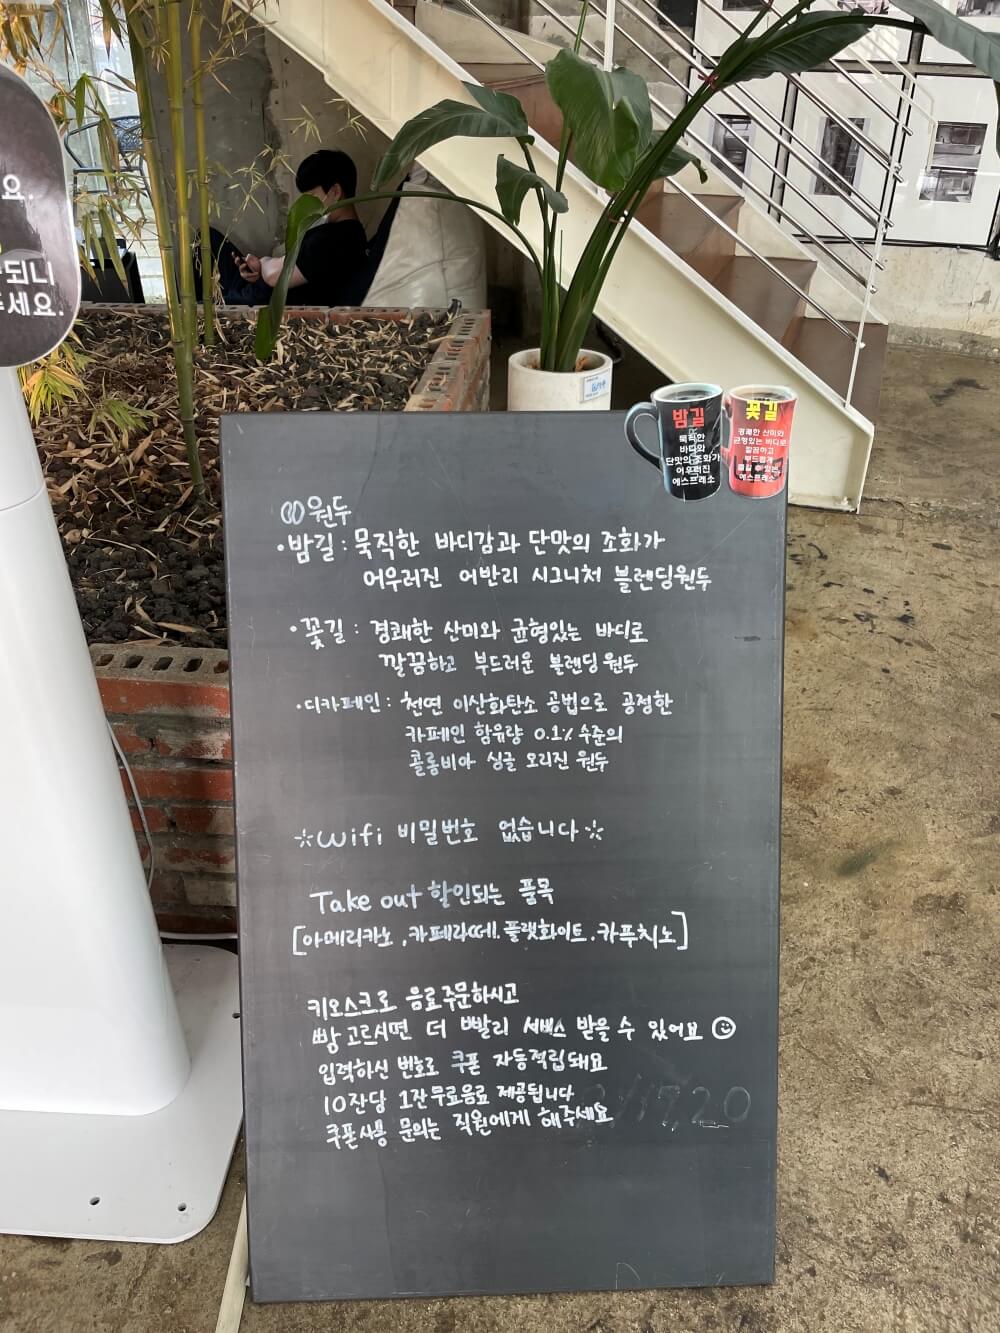 요.
되니
주세요.
밤길
묵직한
바디와
단맛의 조화가
어우러진
에스프레소
꽃길
경쾌한 산미와
균형있는 바디로
깔끔하고
부드럽게
즐길 수 있는
에스프레소
원두
·밤길 : 묵직한 바디감과 단맛의 조화가
어우러진 어반리 시그니처 블렌딩원두
·꽃길 : 경쾌한 산미와 균형있는 바디로
깔끔하고 부드러운 블렌딩원두
·디카페인 : 천연 이산화탄소 공법으로 공정한
카페인 함유량 0.1% 수준의
콜롬비아 싱글 오리진 원두
Wifi 비밀번호 없습니다
Take out 할인되는 품목
[아메리카노, 카페라떼. 플랫화이트. 카푸치노]
키오스크로 음료주문하시고
빵 고르시면 더 빨리 서비스 받을 수 있어요
입력하신 번호로 쿠폰 자동적립돼요
10잔당 1잔 무료음료 제공됩니다
쿠폰사용 문의는 직원에게 해주세요